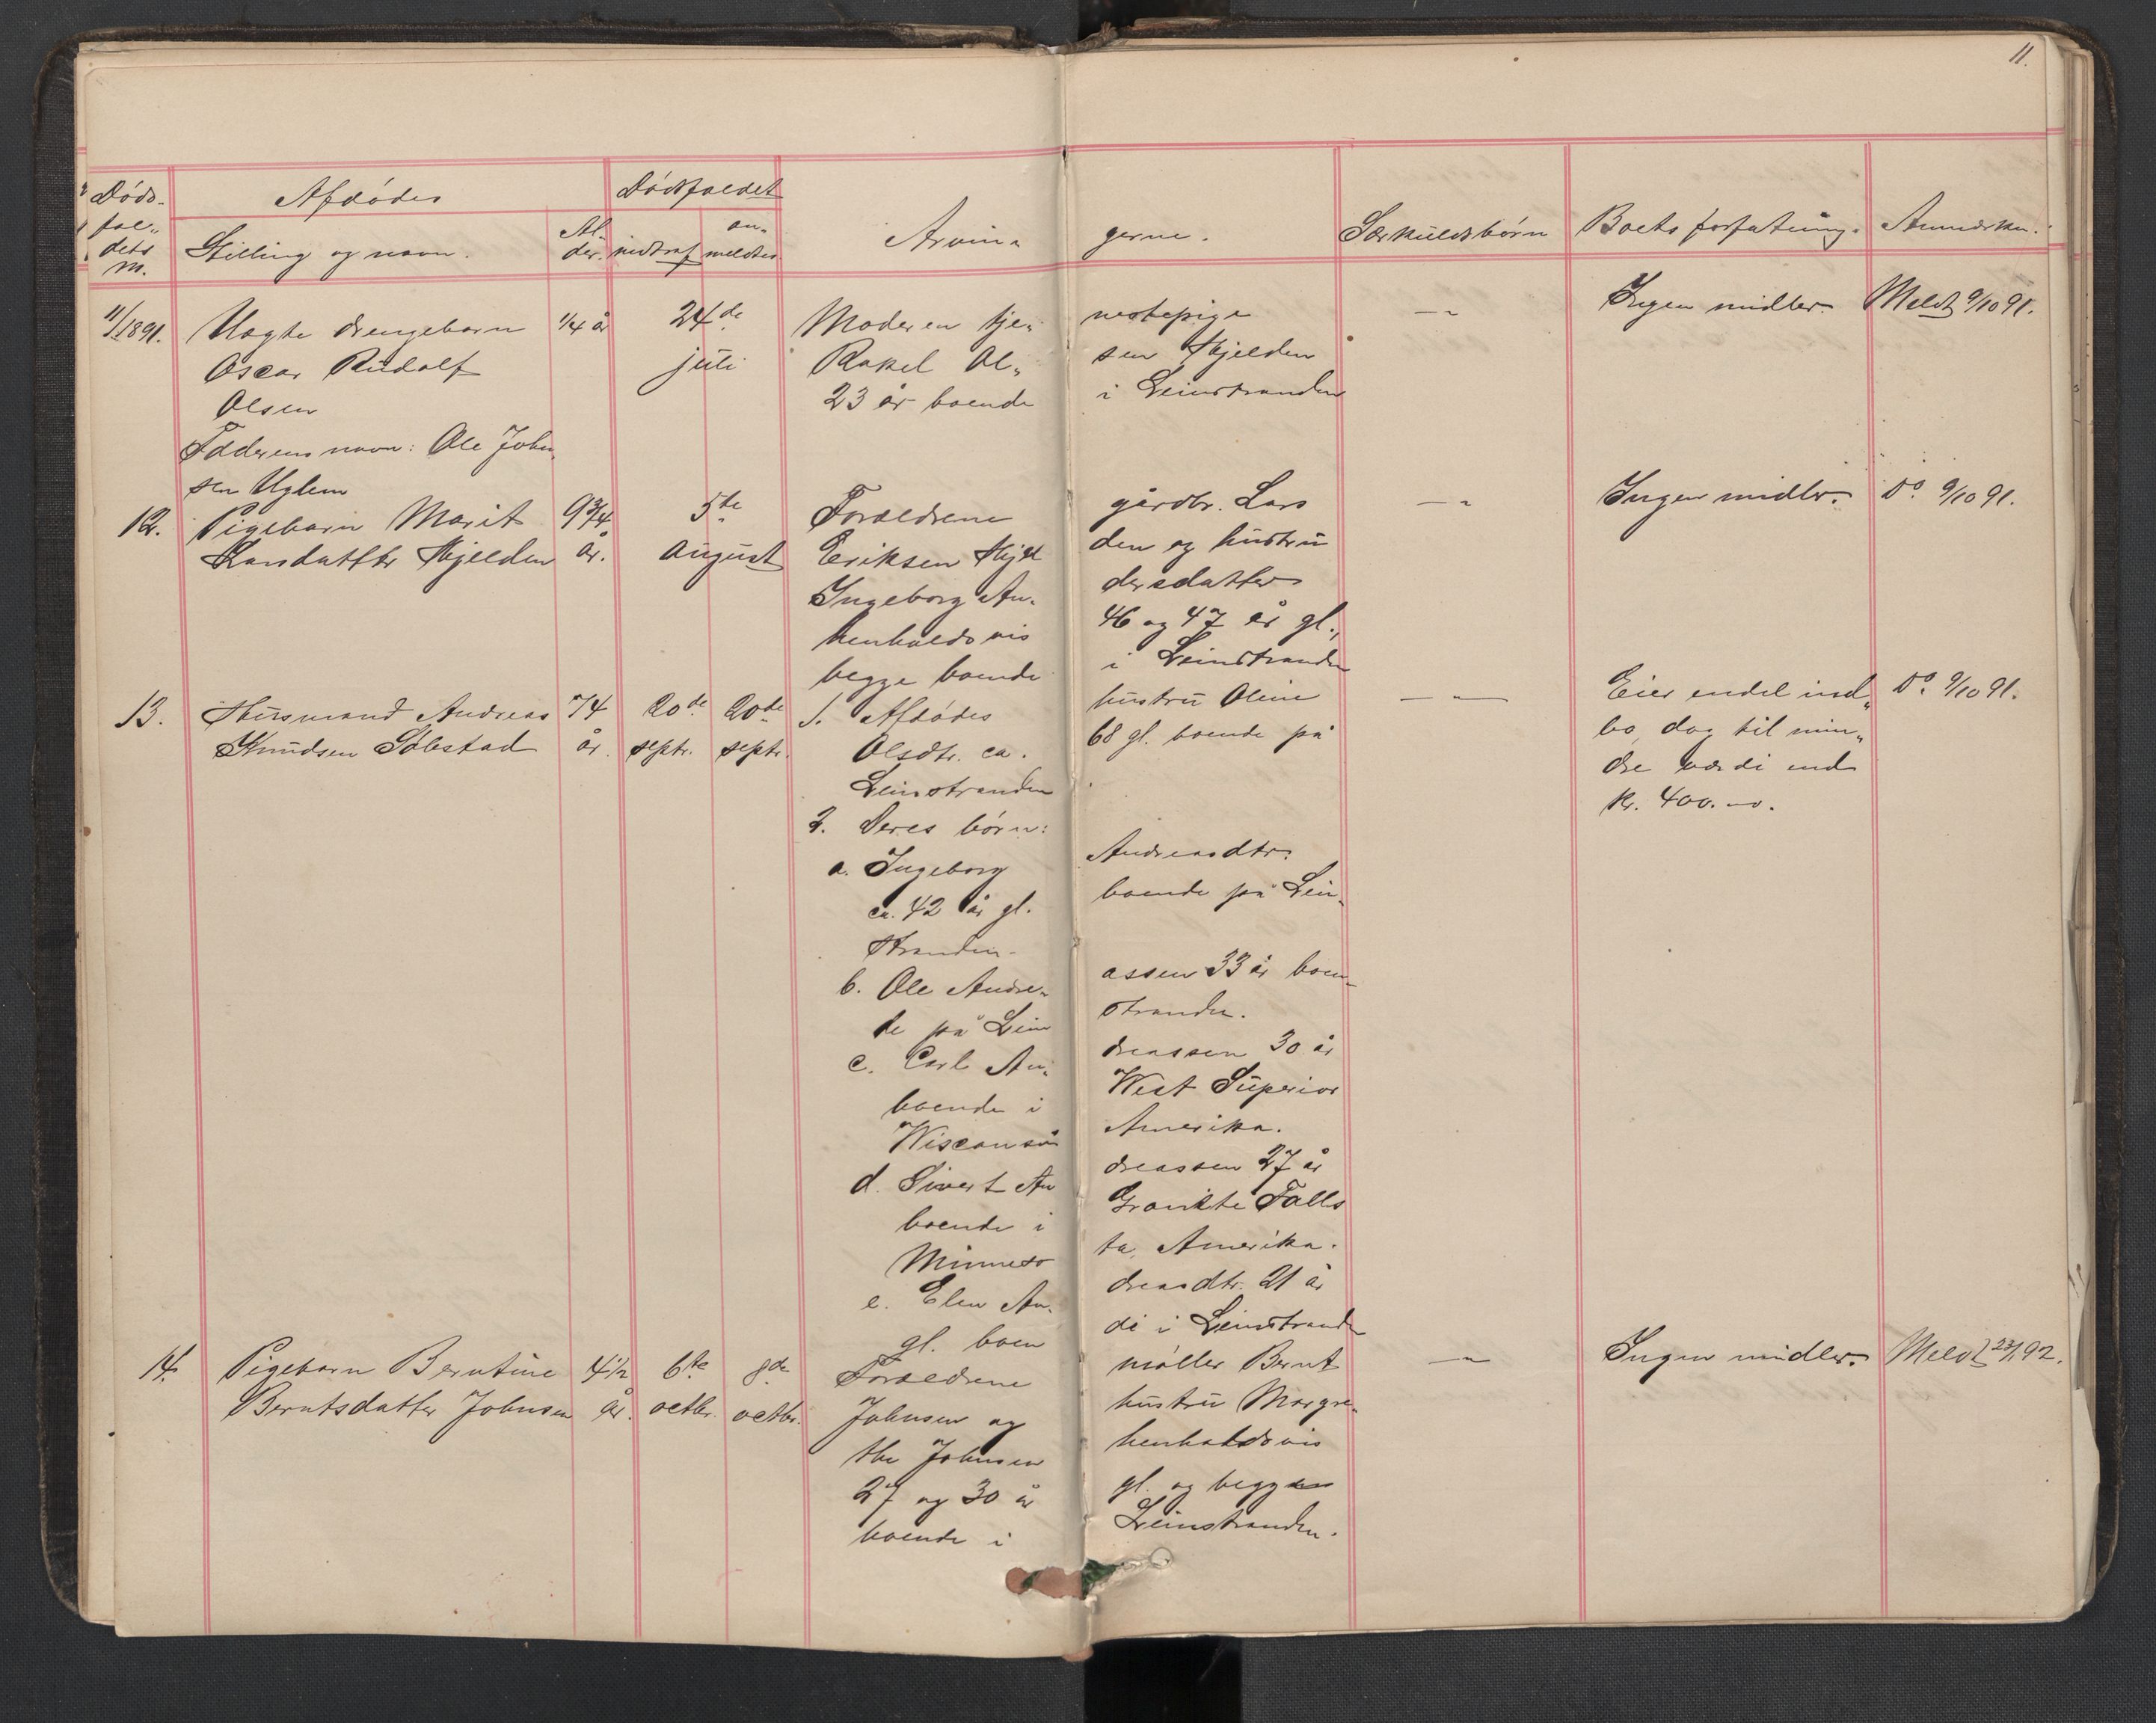 11.
Døds-
fal-
dets
Afdødes
Stilling og navn.
Al-
der.
Dødsfaldet
indtraf
an-
meldtes
Arvin- gerne.
Særkuldsbørn
Boets forfatning.
Anmærkn.
11/1891.
Uægte drengebarn
Oscar Rudolf
Olsen
Faderens navn: Ole John-
sen Uglem
1/4 år
24de
juli
Moderen tje- nestepige
Rakel Ol- sen Hjelden
23 år boende i Leinstranden
— " —
Ingen midler.
Meldt 9/10 91.
12.
Pigebarn Marit
Larsdatter Hjelden
9 3/4
år.
5te
august
Forældrene gårdbr. Lars
Eriksen Hjel den og hustru
Ingeborg An- dersdatter
henholdsvis 46 og 47 år gl.,
begge boende i Leinstranden
— " —
Ingen midler.
Do. 9/10 91.
13.
Husmand Andreas
Knudsen Solestad
74
år.
20de
septr.
20de
septr.
1. Afdødes hustru Oline
Olsdtr. ca. 68 gl. boende på
Leinstranden
2. Deres børn:
a. Ingeborg Andreasdtr.
ca. 42 år gl. boende på Lein-
stranden.
b. Ole Andre- assen 33 år boen-
de på Lein stranden.
c. Carl An- dreassen 30 år
boende i West Superior
Wisconsin Amerika.
d. Sivert An dreassen 27 år
boende i Granite Falls
Minneso ta, Amerika.
e. Elen An- dreasdtr. 21 år
gl. boen de i Leinstranden
— " —
Eier endel ind-
bo, dog til min-
dre værdi end
kr. 400.-0.
Do. 9/10 91.
14.
Pigebarn Berntine
Berntsdatter Johnsen
4 1/2
år.
6te
octbr.
8de
octbr.
Forældrene møller Bernt
Johnsen og hustru Margre-
the Johnsen henholdsvis
27 og 30 år gl. og begge
boende i Leinstranden.
— " —
Ingen midler.
Meldt 23/1 92.